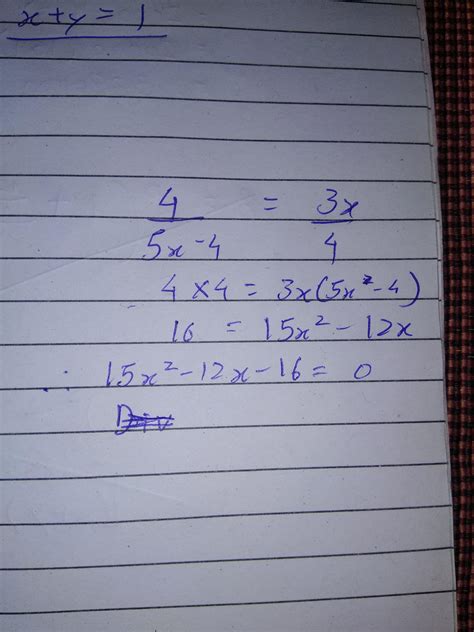 x+y = 1
4/(5x-4) = 3x/4
4 × 4 = 3x(5x-4)
16 = 15x² - 12x
∴ 15x² - 12x - 16 = 0